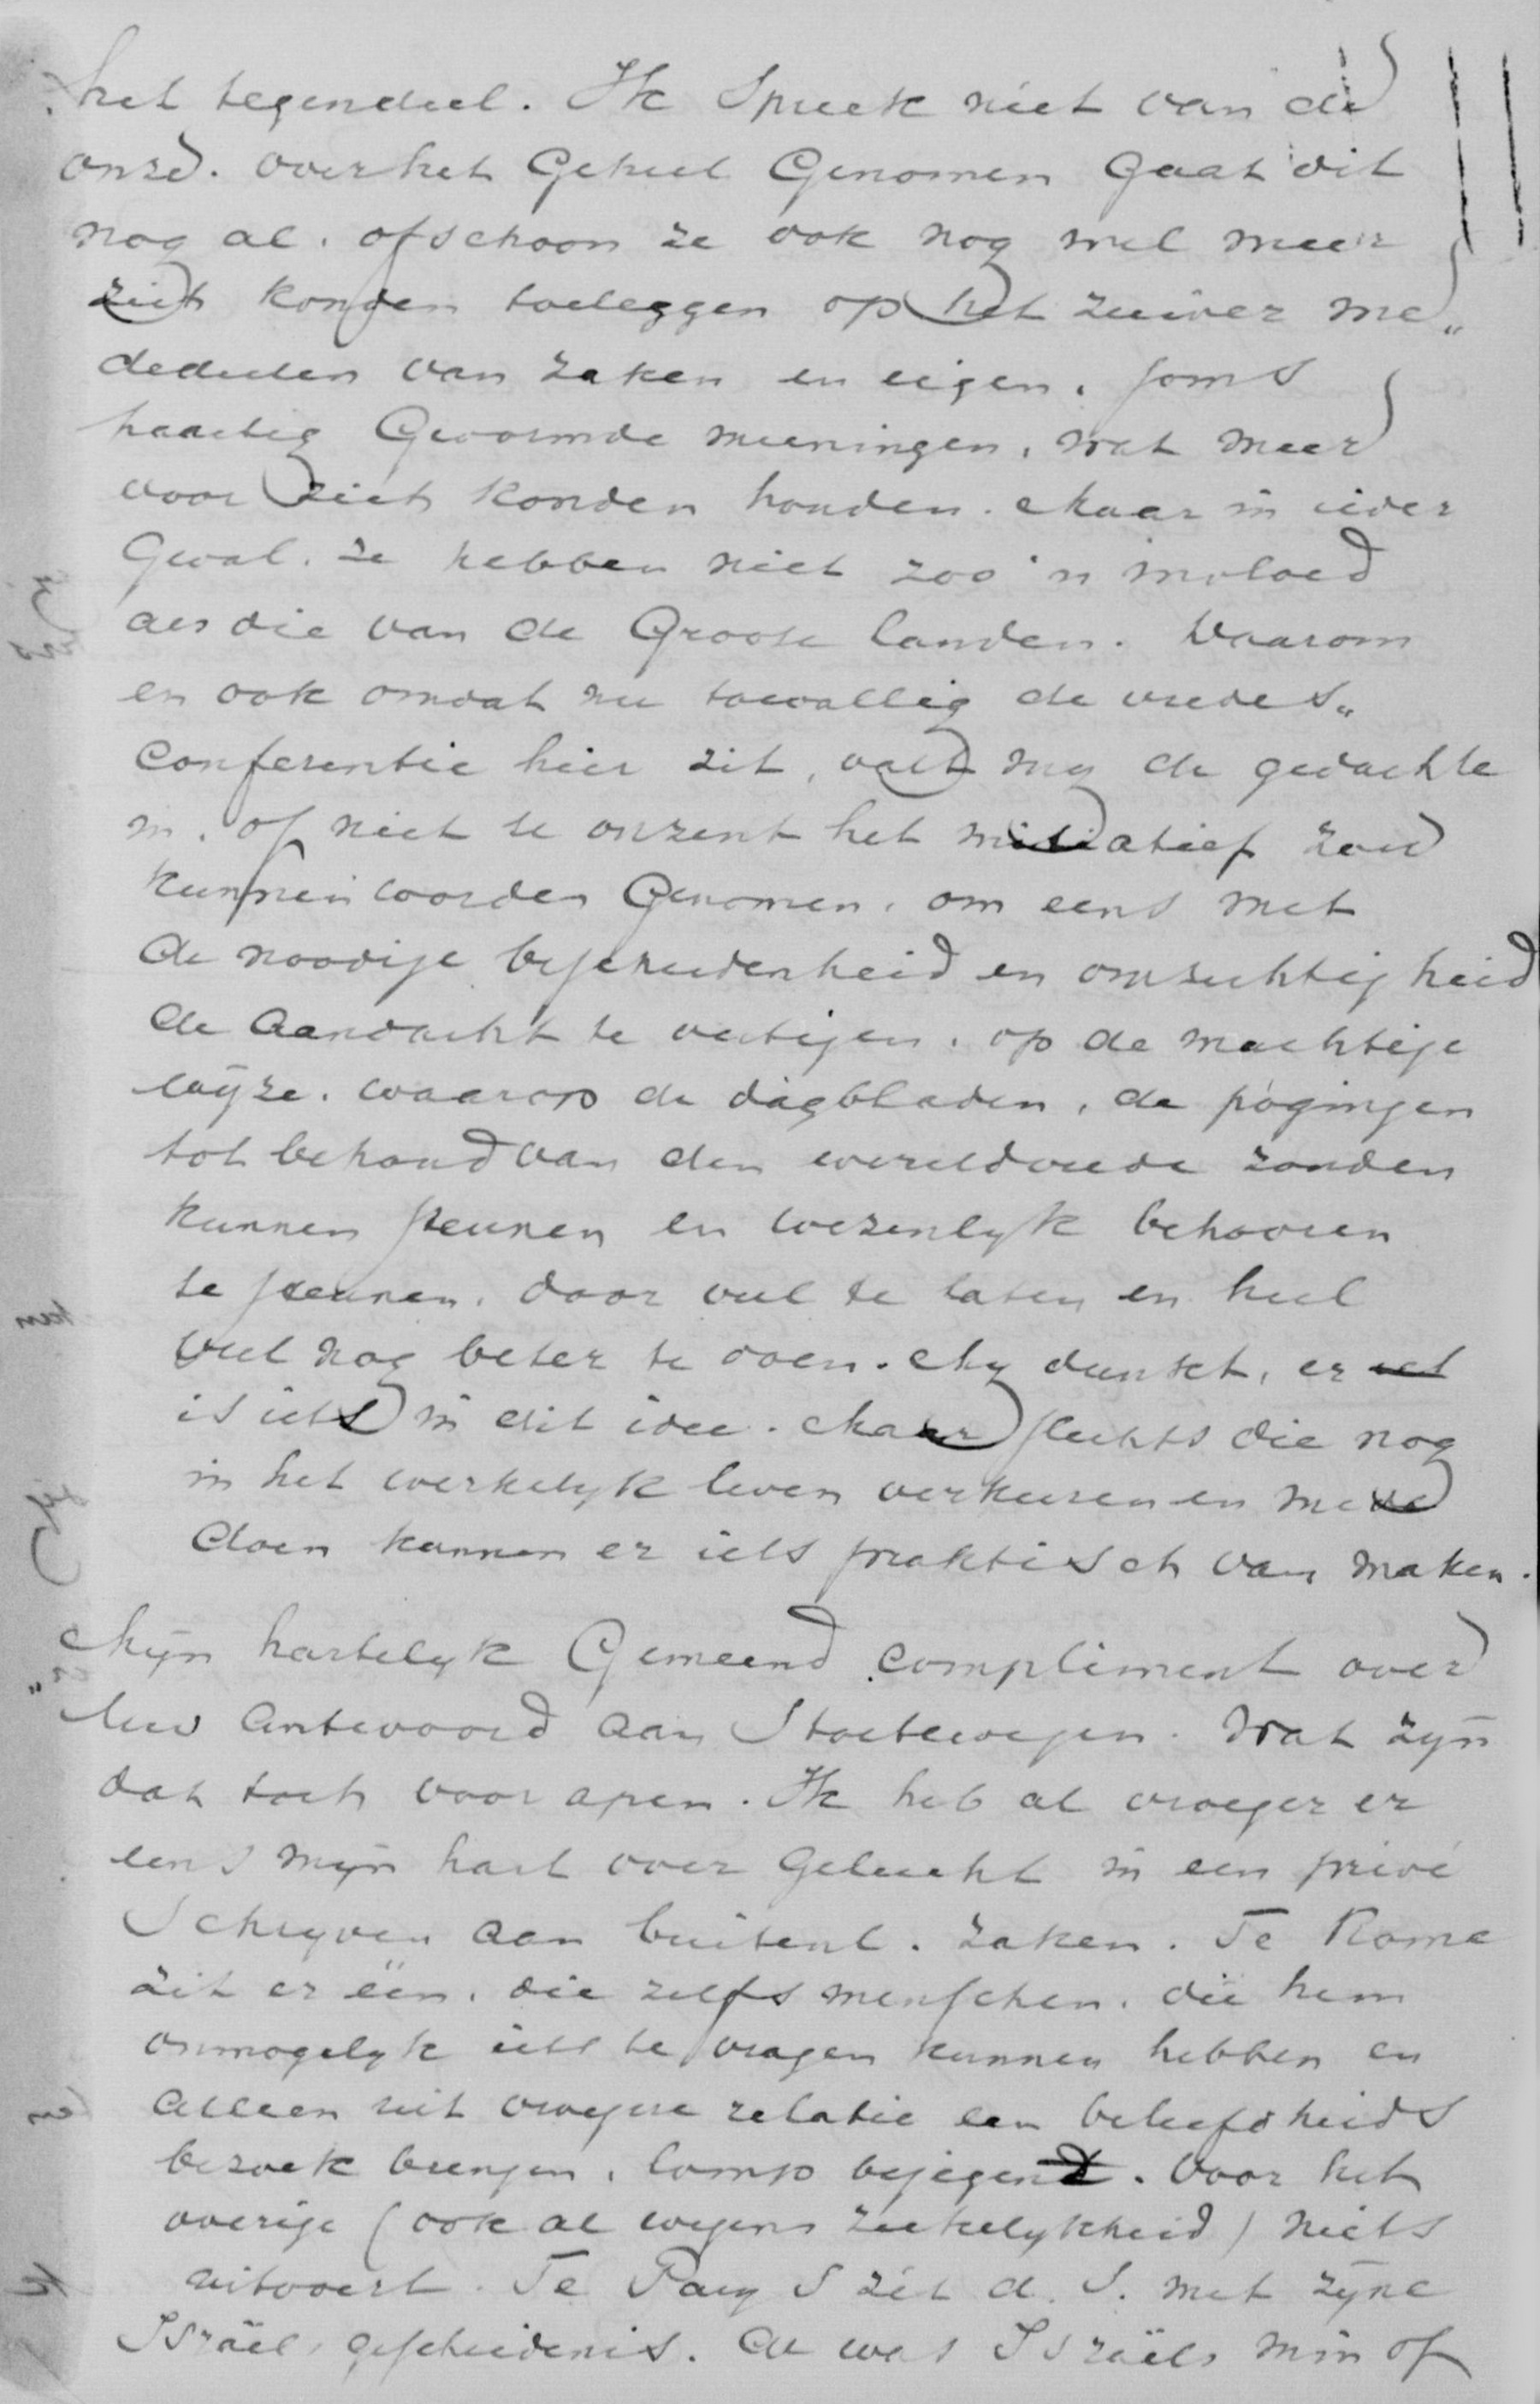 het tegendeel. Ik Spreek niet van de
onze. over het Geheel Genomen Gaat dit
nog al. ofschoon ze ook nog wel meer
zich konden toeleggen op het zuiver me„
dedeelen van zaken en eigen, soms
haastig Gevormde meeningen, wat meer
voor zich konden houden. Maar in ieder
Geval. ze hebben niet zoo'n invloed
als die van de Groote landen. Waarom
en ook omdat nu toevallig de vredes„
conferentie hier zit, valt my de gedachte
in, of niet te onzent het initiatief zou
kunnen worden Genomen, om eens met
de noodige bescheidenheid en omzichtigheid
de aandacht te vestigen, op de machtige
wijze, waarop de dagbladen, de pogingen
tot behoud van den wereldvrede zouden
kunnen steunen en wezenlyk behooren
te steunen, door veel te laten en heel
veel nog beter te doen. My dunkt, er
is iets in dit idee. Maar slechts die nog
in het werkelyk leven verkeeren en mede
doen kunnen er iets praktisch van maken.
Mijn hartelyk Gemeend compliment over
Uw Antwoord aan Stoetwegen. Wat zijn
dat toch voor apen. Ik heb al vroeger er
eens mijn hart over gelucht in een privé
Schryven aan buitenl. zaken. Te Rome
zit er een, die zelfs menschen, die hem
onmogelyk iets te vragen kunnen hebben en
alleen uit vroegere relatie een beleefdheids
bezoek brengen, lomp bejegend. Voor het
overige (ook al wegens ziekelykheid) niets
uitvoert. Te Parys zit d. S. met zijne
Israëls geschiedenis. Al was Israëls min of